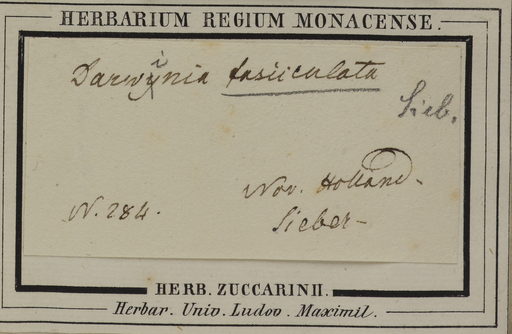 HERBARIUM REGIUM MONACENSE.
Darwinia fasciculata
Sieb.
Nov. Holland-
N. 284.
Sieber-
HERB. ZUCCARINII.
Herbar. Univ. Ludov. Maximil.